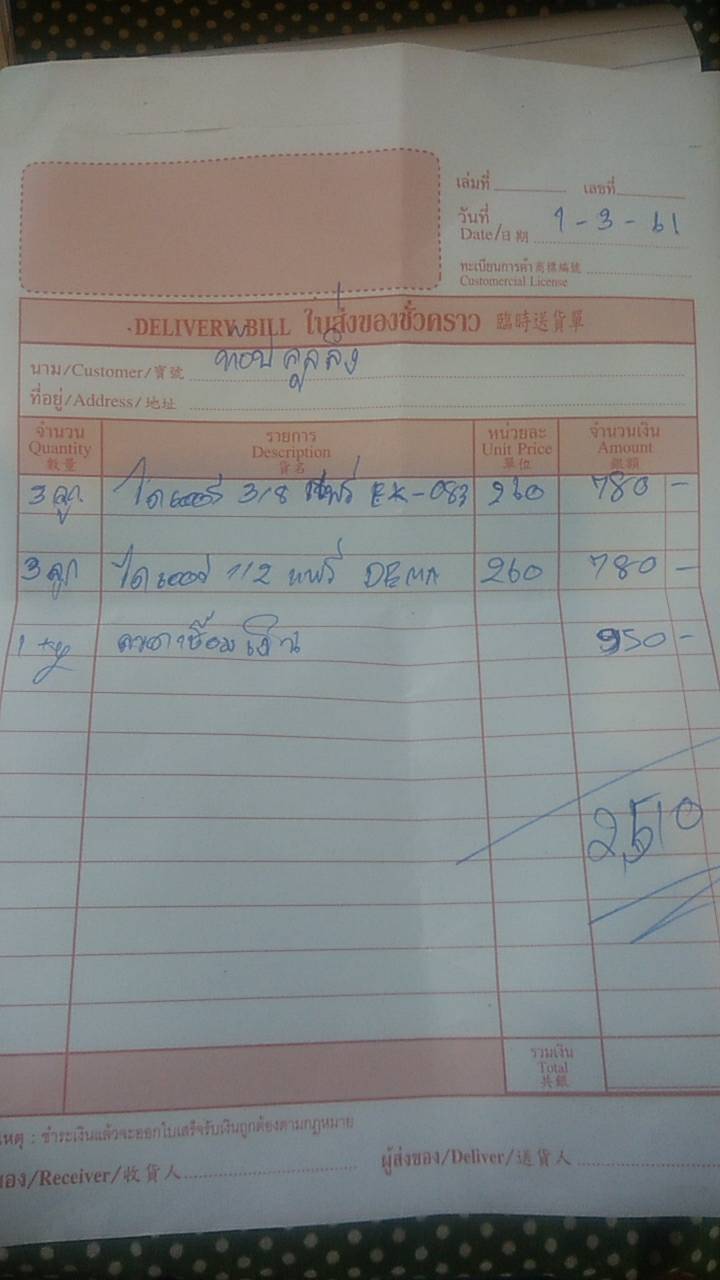 เล่มที่ เลขที่
วันที่
Date/日期 1-3-61
ทะเบียนการค้า 商標編號
Customercial License
DELIVERY BILL ใบส่งของชั่วคราว 臨時送貨單
นาม/Customer/寶號 ท๊อปคูลลิ่ง
ที่อยู่/Address/地址
จำนวน รายการ หน่วยละ จำนวนเงิน
Quantity Description Unit Price Amount
數量 貨名 單位 銀額
3 ลูก ไดเออร์ 3/8 แฟร์ EK-083 260 780 -
3 ลูก ไดเออร์ 1/2 แฟร์ DEMA 260 780 -
1 ลวดเชื่อมเงิน 950 -
2,510
รวมเงิน
Total
共銀
เหตุ : ชำระเงินแล้วจะออกใบเสร็จรับเงินถูกต้องตามกฎหมาย
ของ/Receiver/收貨人 ผู้ส่งของ/Deliver/送貨人